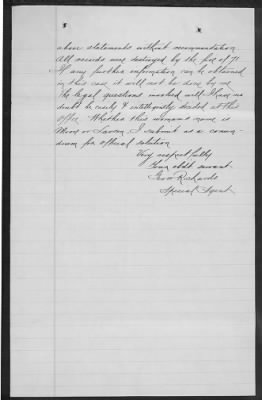 above statements without recommendation.
All records were destroyed by the fire of 71
If any further information can be obtained
in this case it will not be done by me
The legal questions involved will I have no
doubt be easily & intelligently decided at this
office. Whether this woman's name is
or I submit as a conun-
drum for official solution
Very respectfully
Your obdt servant
Richards
Special Agent